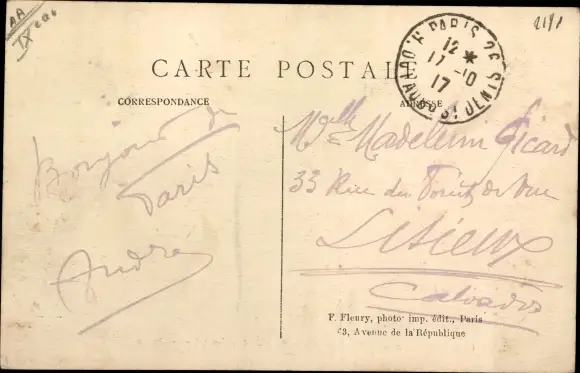 AA
IX eme
PARIS 26
12 *
17 - 10
17
R. DU FAUBg ST DENIS
CARTE POSTALE
CORRESPONDANCE
ADRESSE
Bonjour de
Paris
André
Melle Madeleine Picard
33 Rue du Point de Vue
Lisieux
Calvados
F. Fleury, photo imp. édit., Paris
43, Avenue de la République